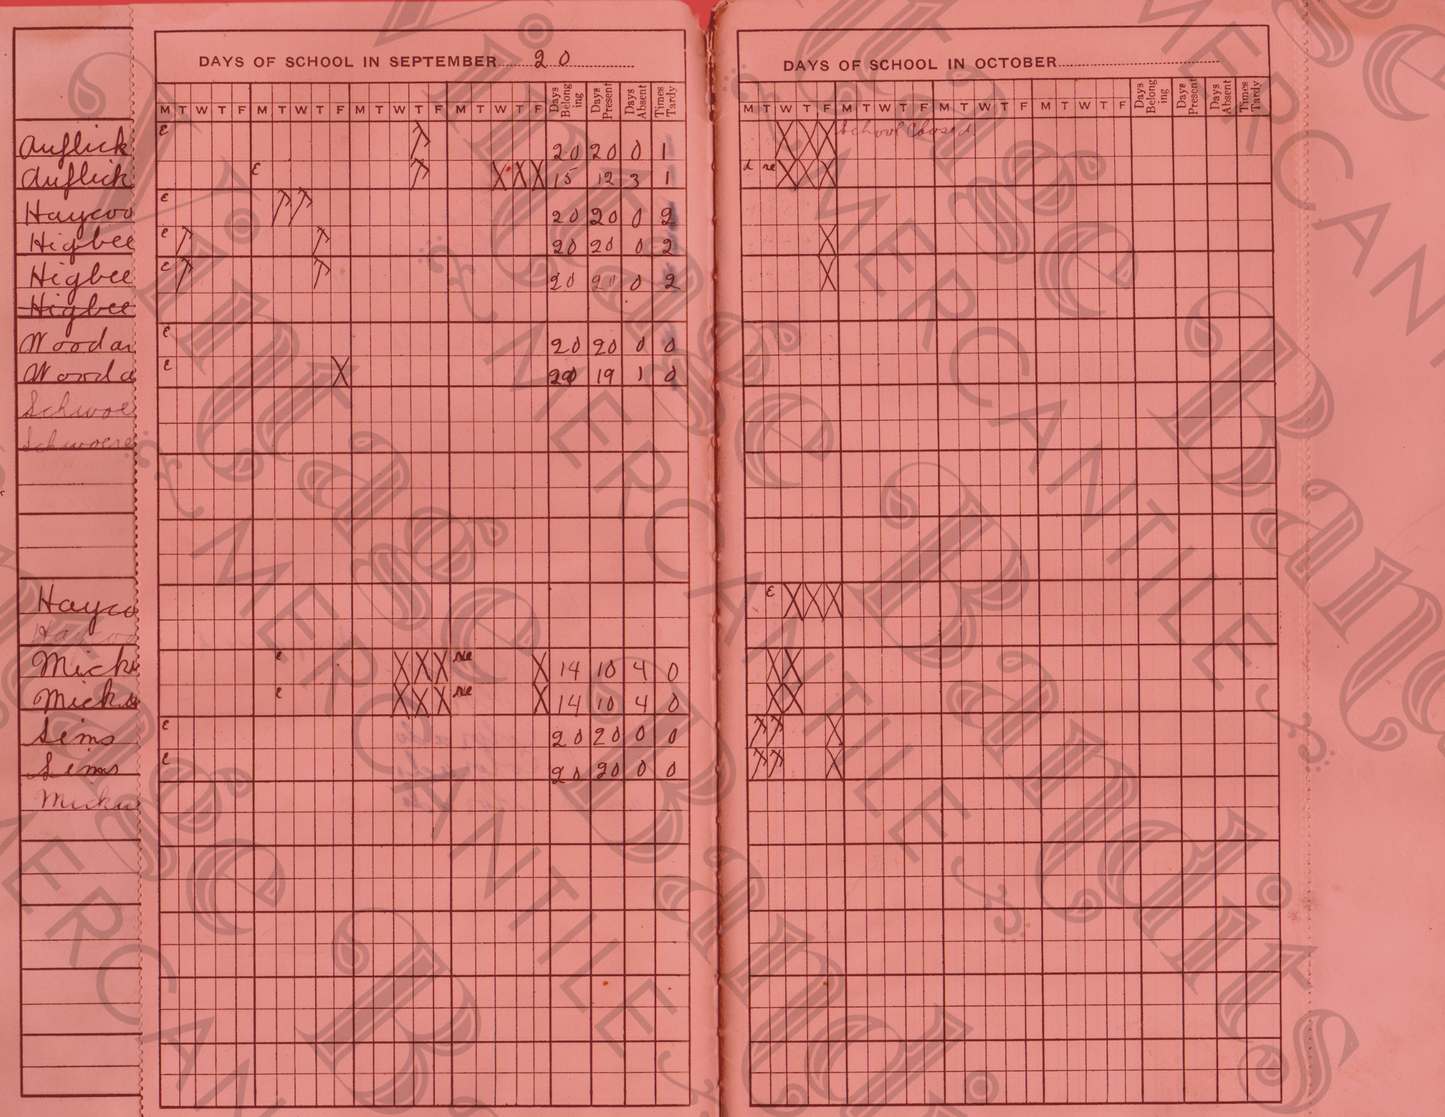 DAYS OF SCHOOL IN SEPTEMBER 20
M T W T F M T W T F M T W T F M T W T F Days Belonging Days Present Days Absent Times Tardy
Auflick e 20 20 0 1
Auflick e 15 12 3 1
Haycoo e 20 20 0 2
Higbee e 20 20 0 2
Higbee e 20 20 0 2
Higbee
Woodar e 20 20 0 0
Wooda e 20 19 1 0
Schwoe
Schwoere
Hayco
Haycoo
Micke e re 14 10 4 0
Micke e re 14 10 4 0
Sims e 20 20 0 0
Sims e 20 20 0 0
Micke
DAYS OF SCHOOL IN OCTOBER
M T W T F M T W T F M T W T F M T W T F Days Belonging Days Present Days Absent Times Tardy
School Closed
d re
E
Vintage Bandits
MERCANTILE